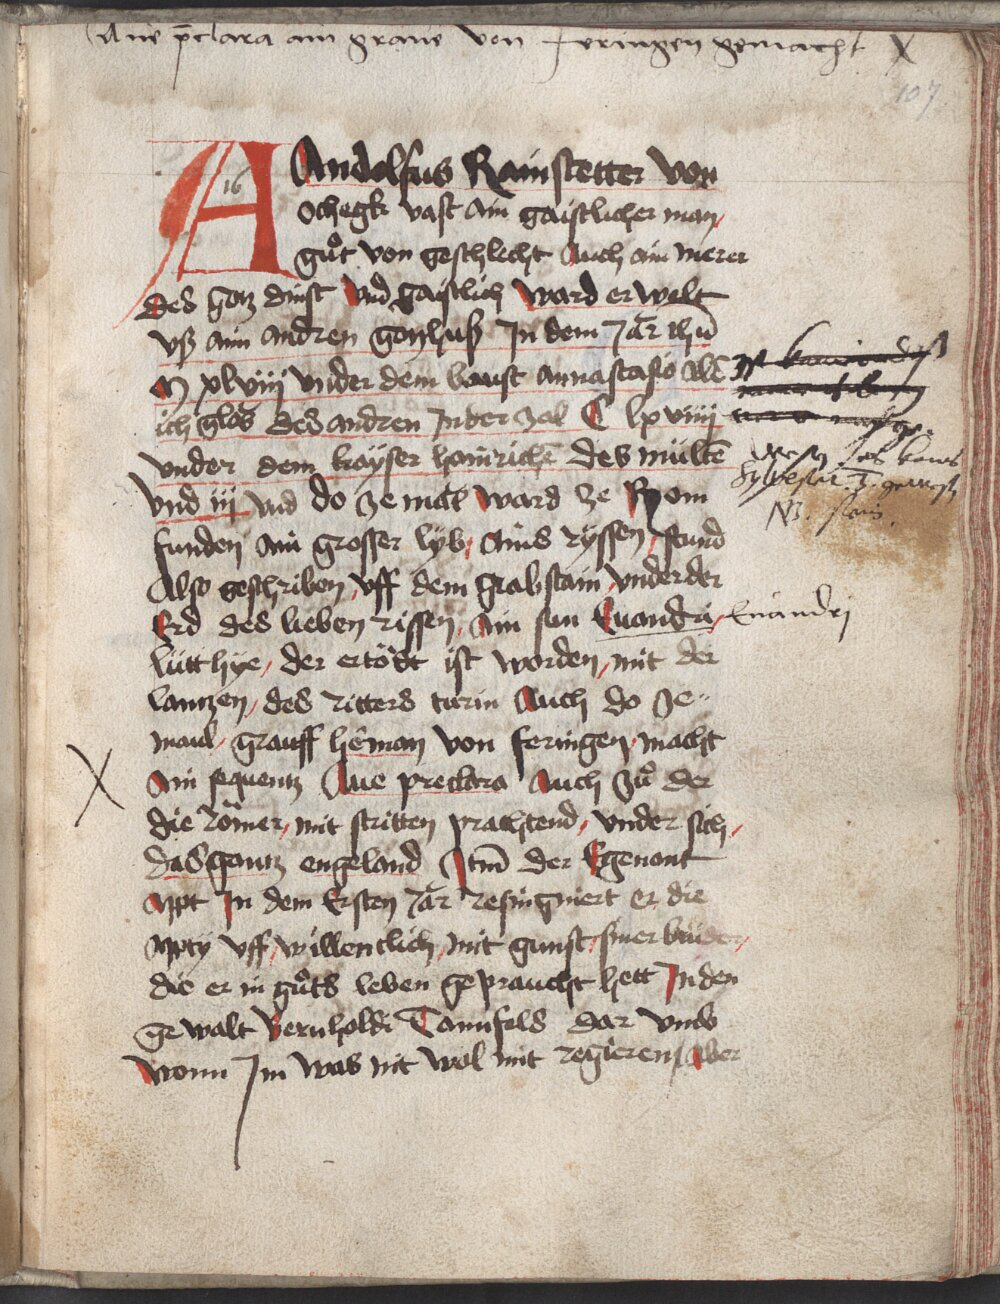 Aue p̄clara ain graue von feringen gemacht X
107
16
AAndolfus Rainstetter von
ochegk vast ain gaistlicher man
gůt von geschlecht Auch ain merer
des gotz dinst Vnd gaistlich Ward erwelt
vß aim andren gotzhuß In dem Jar
M xlviij vnder dem baust annastasio
des andren In der zal C lxviiij
vnder dem kayser hainrichē des milltē
Vnd iij vnd do ze mal ward ze Rom
funden ain grosser lyb, Ains ryssen, stund
Also geschriben, vff dem Grabstain, vnder der
Erd des lieben rissen, Ain sun Euandri, Euandri
lütt hye, der ertödt ist worden, mit der
lantzen, des ritters turin Auch do ze-
maul, grauff hēman von feringen, macht
X Ain sequentz Aue preclara Auch zů der
die Römer, mit stritten prachtend, vnder sich,
das gantz engeland Itm̄ der Egenant
Appt In dem Ersten Jar resingniert er die
Appty vff, willentlich, mit gunst, siner brüder,
die er in gůts leben gepraucht hett In den
gewalt Bernholdi Tannfels dar vmb
wonn Im was nit wol mit regieren, Aber